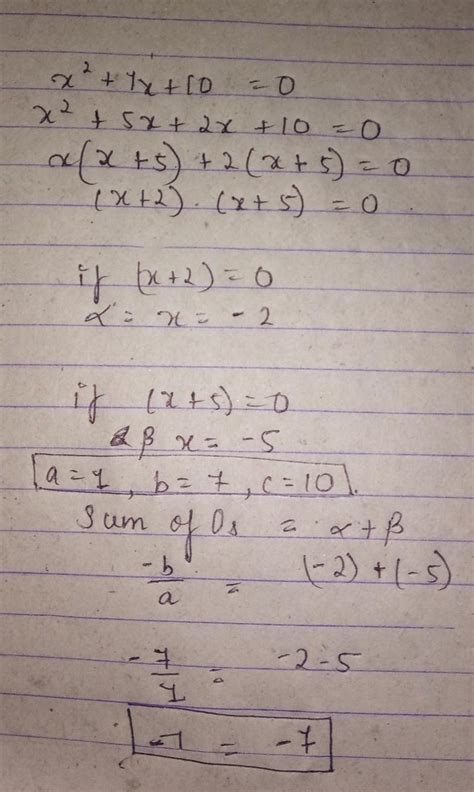 x² + 7x + 10 = 0
x² + 5x + 2x + 10 = 0
x(x + 5) + 2(x + 5) = 0
(x+2) . (x+5) = 0
if (x+2) = 0
α = x = -2
if (x+5) = 0
β x = -5
a = 1, b = 7, c = 10
Sum of 0s = α + β
-b/a = (-2) + (-5)
-7/1 = -2-5
-7 = -7